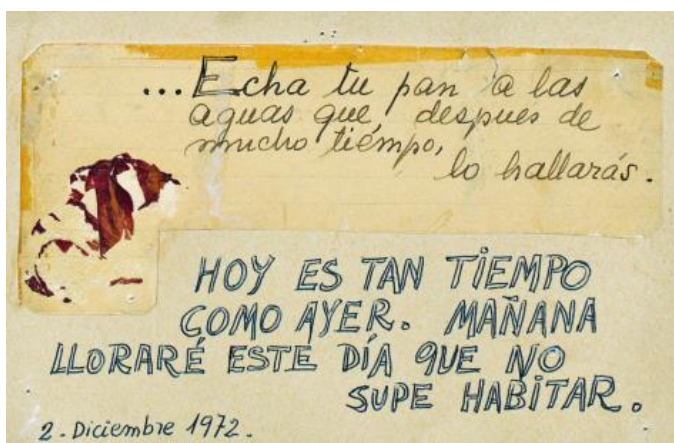 ...Echa tu pan a las
aguas que, despues de
mucho tiémpo,
lo hallarás.
HOY ES TAN TIEMPO
COMO AYER. MAÑANA
LLORARÉ ESTE DÍA QUE NO
SUPE HABITAR.
2. Diciembre 1972.